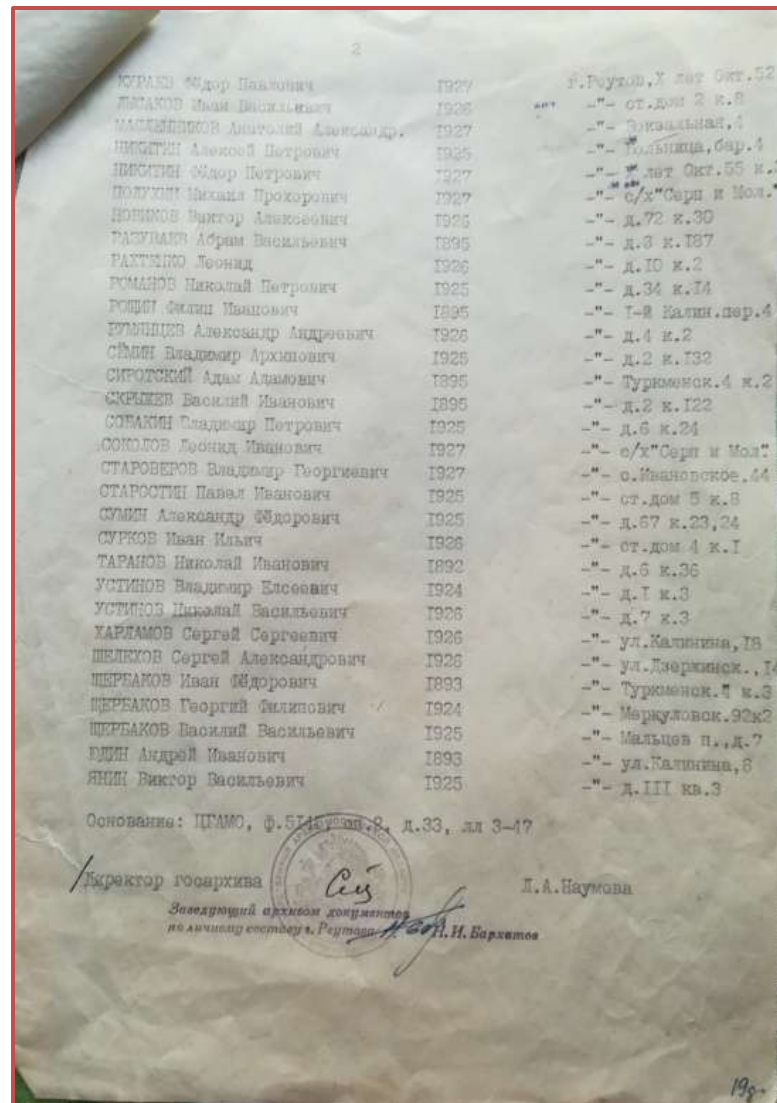 2
КУРАЕВ Фёдор Павлович 1927 г.Реутов,Х лет Окт.52
ЛЫСАКОВ Иван Васильевич 1926 -"- ст.дом 2 к.8
МАСЛЕННИКОВ Анатолий Александр. 1927 -"- Вокзальная,4
НИКИТИН Алексей Петрович 1925 -"- Гольница,бар.4
НИКИТИН Фёдор Петрович 1927 -"- лет Окт.55 к.
ПОЛУХИН Михаил Прохорович 1927 -"- с/х"Серп и Мол."
НОВИКОВ Виктор Алексеевич 1926 -"- д.72 к.30
РАЗУВАЕВ Абрам Васильевич 1895 -"- д.3 к.187
РАХТЕНКО Леонид 1926 -"- д.10 к.2
РОМАНОВ Николай Петрович 1925 -"- д.34 к.14
РОЩИН Филип Иванович 1895 -"- I-й Калин.пер.4
РУМЯНЦЕВ Александр Андреевич 1926 -"- д.4 к.2
СЁМИН Владимир Архипович 1926 -"- д.2 к.132
СИРОТСКИЙ Адам Адамович 1895 -"- Туркменск.4 к.2
СКРЫЖЕВ Василий Иванович 1895 -"- д.2 к.122
СОБАКИН Владимир Петрович 1925 -"- д.6 к.24
СОКОЛОВ Леонид Иванович 1927 -"- с/х"Серп и Мол"
СТАРОВЕРОВ Владимир Георгиевич 1927 -"- с.Ивановское,44
СТАРОСТИН Павел Иванович 1925 -"- ст.дом 5 к.8
СУМИН Александр Фёдорович 1925 -"- д.67 к.23,24
СУРКОВ Иван Ильич 1926 -"- ст.дом 4 к.I
ТАРАНОВ Николай Иванович 1892 -"- д.6 к.36
УСТИНОВ Владимир Елсеевич 1924 -"- д.I к.3
УСТИНОВ Николай Васильевич 1926 -"- д.7 к.3
ХАРЛАМОВ Сергей Сергеевич 1926 -"- ул.Калинина,18
ШЕЛЕХОВ Сергей Александрович 1926 -"- ул.Дзержинск.,14
ЩЕРБАКОВ Иван Фёдорович 1893 -"- Туркменск. к.3
ЩЕРБАКОВ Георгий Филипович 1924 -"- Меркуловск.92к2
ЩЕРБАКОВ Василий Васильевич 1925 -"- Мальцев п.,д.7
ЮДИН Андрей Иванович 1893 -"- ул.Калинина,8
ЯНИН Виктор Васильевич 1925 -"- д.III кв.3
Основание: ЦГАМО, ф.5145, оп.2, д.33, лл 3-47
Директор госархива Л.А.Наумова
Заведующий архивом документов
по личному составу г. Реутова Н.И. Бархатов